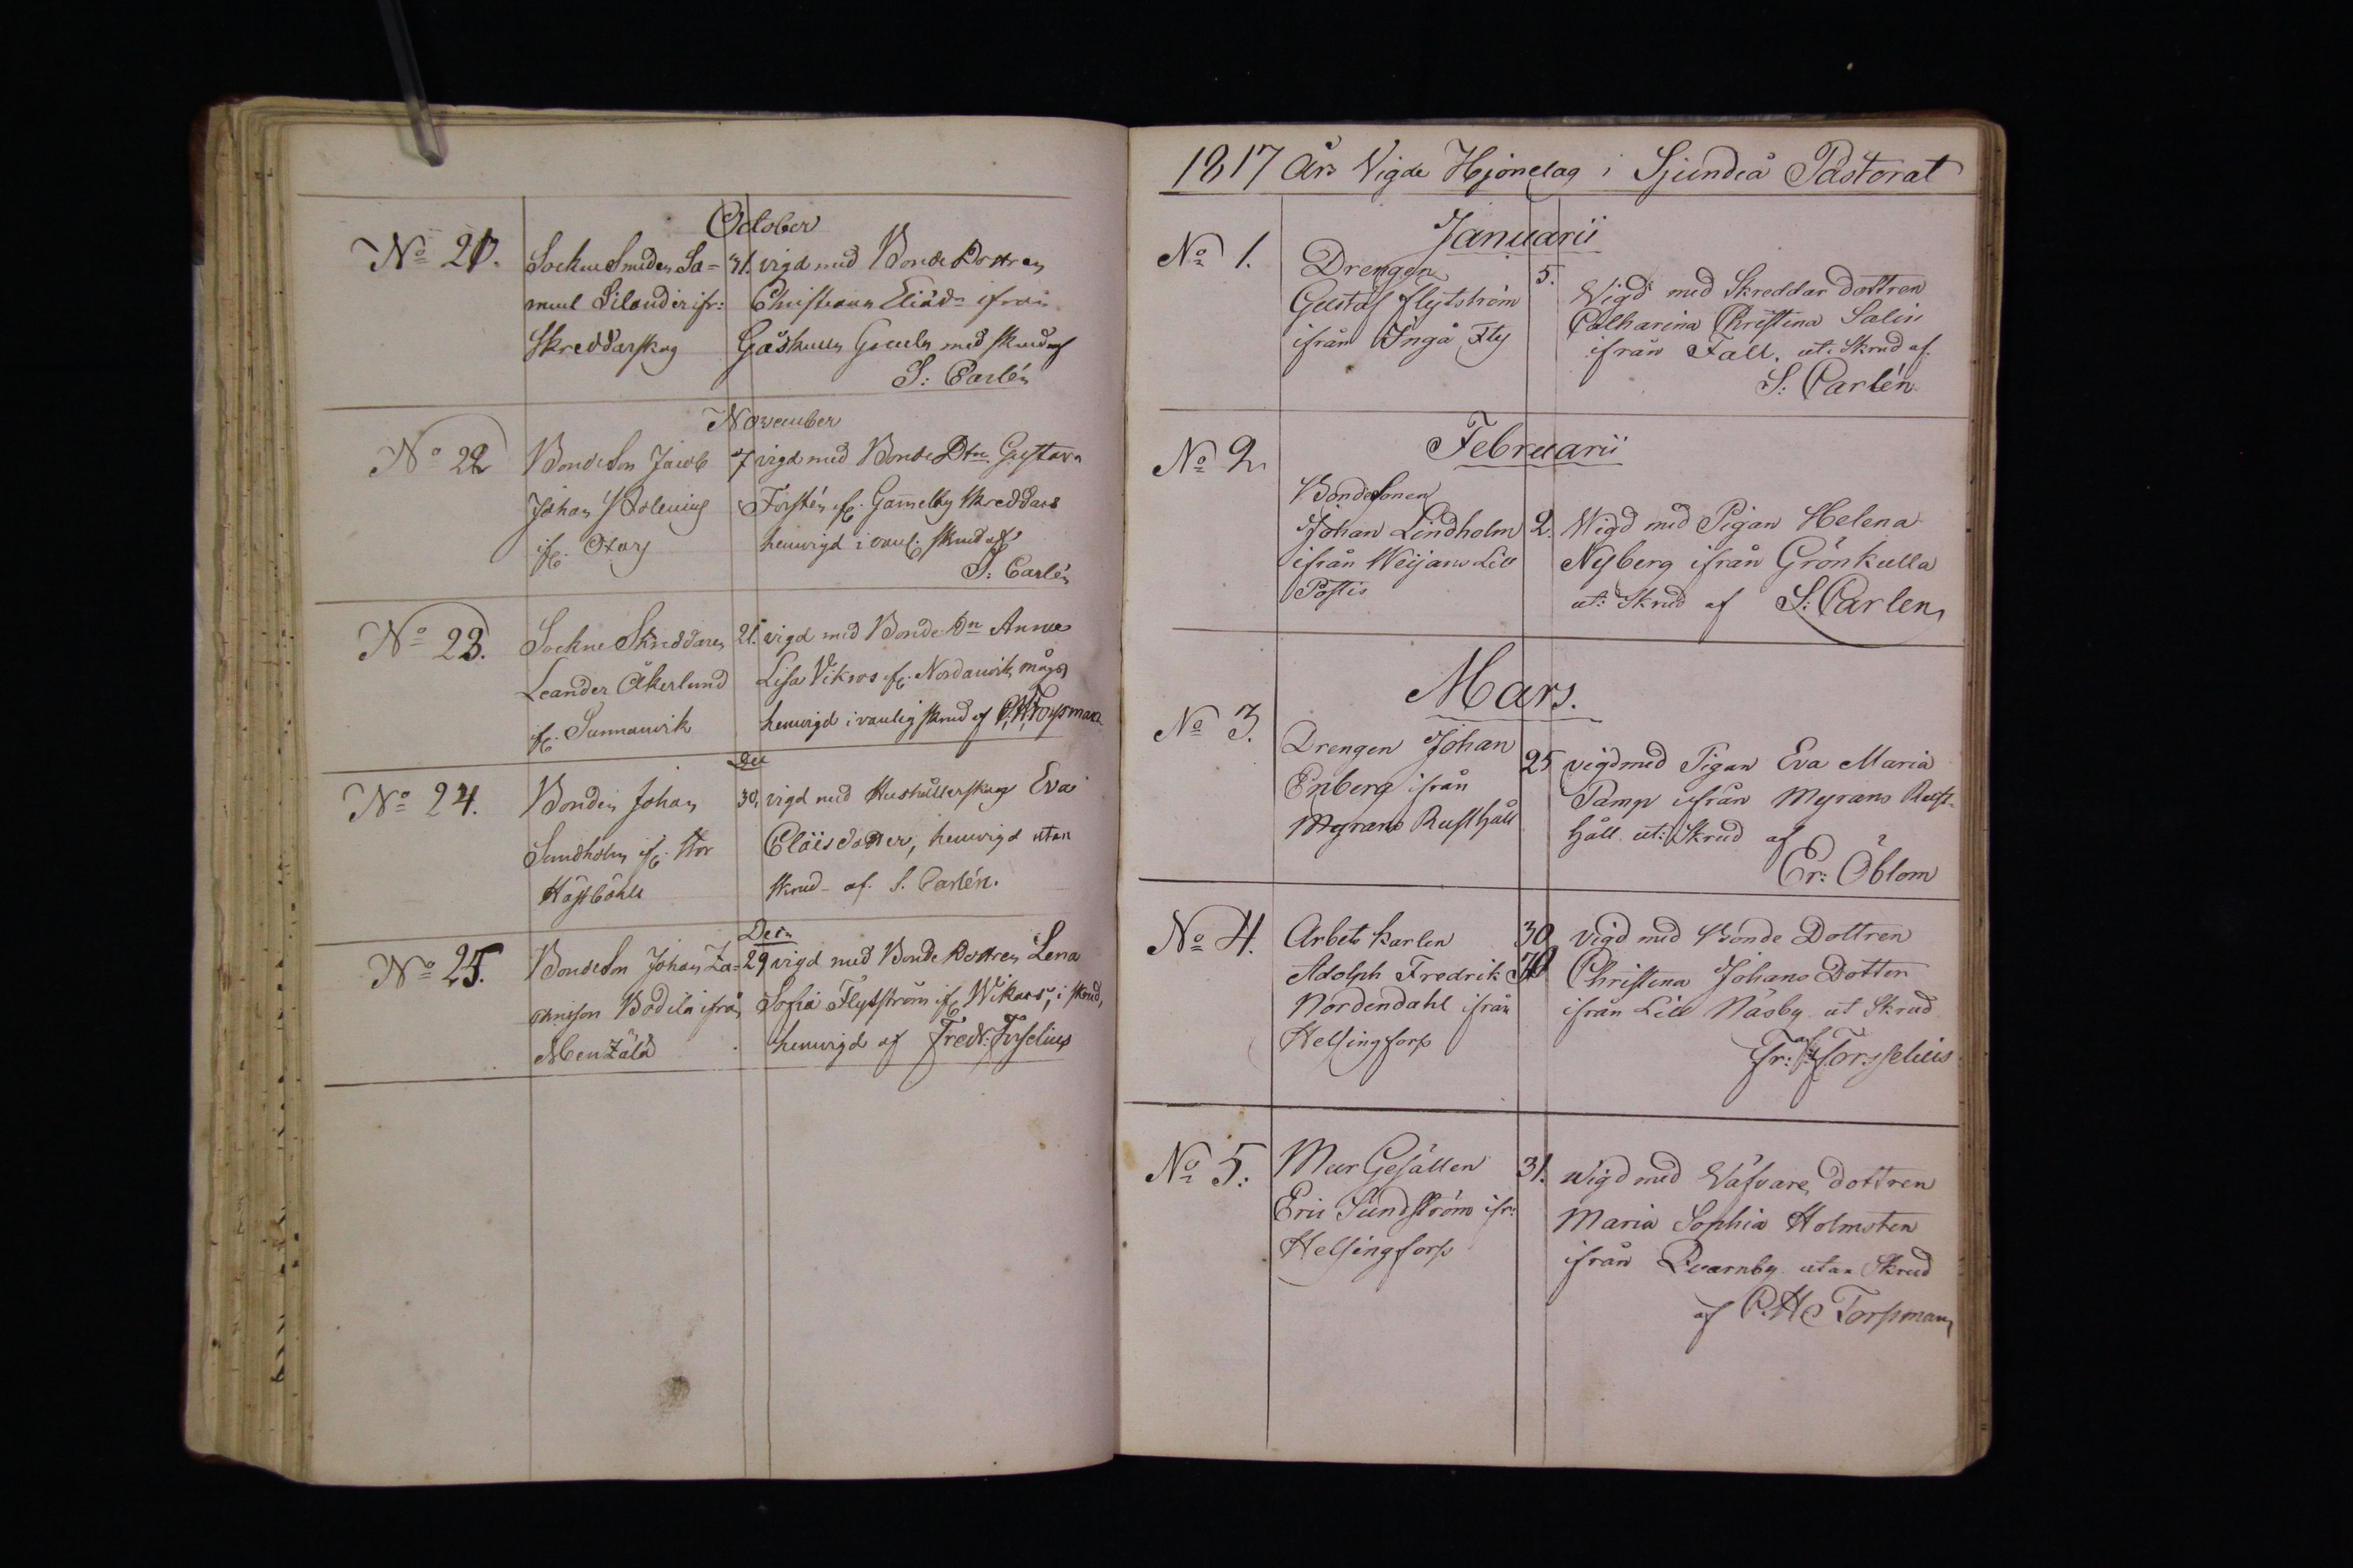 October
No 21.
Sockne Smeden Sa=
muel Silander ifr:
Skreddarskog
31. vigd med Bonde Dottren
Christiana Eliæd:r ifrån
Gåskulla med skrud af
S: Carlén
November
No 22
Bonde Son Jacob
Johan
ifr. Otary
7 vigd med Bonde Dtn Gustava
Forstén ifr. Gammelby Skreddars
hemvigd i vanl: skrud af
S: Carlén
No 23.
Sockne Skreddaren
Leander Åkerlund
ifr. Sunnanvik
21. vigd med Bonde Dn Anna
Lisa Viksos ifr. Nordanvik
hemvigd i vanlig skrud af P. H. Torpman
No 24.
Bonden Johan
Sundholm ifr. Stor
Höstböhle
30. vigd med Hushållerskan Eva
Eliisdotter, hemvigd utan
skrud af S. Carlén.
Decn
No 25.
Bonde Son Johan Za=
Bodila ifrån
29 vigd med Bonde Dottren Lena
Sofia Flytström ifr Wikars, i skrud,
hemvigd af Fredr: Forselius
1817 Års Vigde Hjonelag i Sjundeå Pastorat
Januarii
No 1.
Drengen
Gustaf Flytström
ifrån Ingå Fly
5.
Vigd med Skreddar dottren
Catharina Christina Salin
ifrån Fall. ut: Skrud af.
S: Carlén
Februarii
No 2
Bondesonen
Johan Lindholm
ifrån Weijans Lill
Postis
2. Wigd med Pigan Helena
Nyberg ifrån Grönkulla
ut: Skrud af S: Carlen
Mars.
No 3.
Drengen Johan
Enberg ifrån
Myrans Rusthåll
25 vigd med Pigan Eva Maria
Pamp ifrån Myrans Rust-
håll ut: Skrud af
Er: Öblom
No 4.
Arbets karlen
Adolph Fredrik
Nordendahl ifrån
Helsingfors
30 vigd med Bonde Dottren
Christina Johans Dotter
ifrån Lill Näsby ut Skrud
af
Fr: Forsselius
No 5:
Mur Gesällen
Eric Sundström ifr:
Helsingfors
31. wigd med Väfvare dottren
Maria Sophia Holmsten
ifrån Qvarnby utan Skrud
af P. H. Torpman